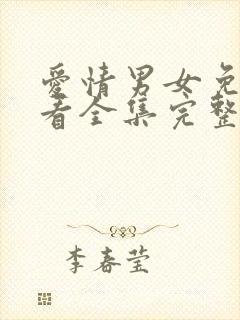 爱情男女免
看全集完整
李春莹